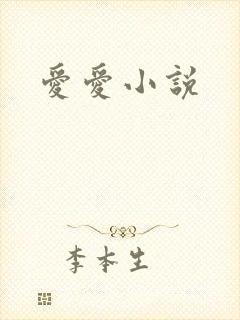 愛愛小説
李本生